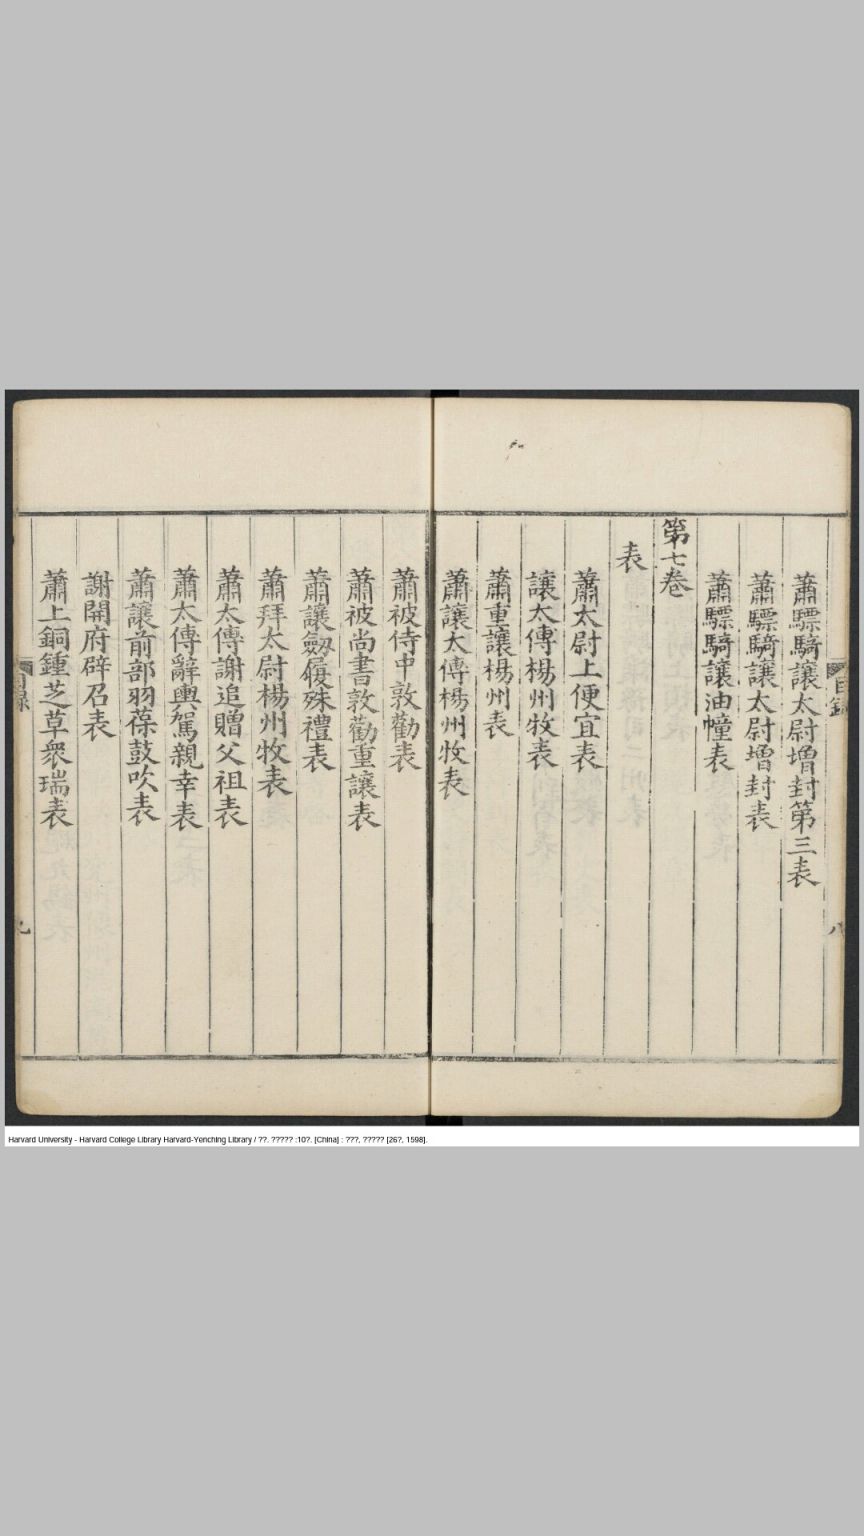 蕭驃騎讓太尉增封第三表
蕭驃騎讓太尉增封表
蕭驃騎讓油幢表
第七卷
表
蕭太尉上便宜表
讓太傅楊州牧表
蕭重讓楊州表
蕭讓太傅楊州牧表
蕭被侍中敦勸表
蕭被尚書敦勸重讓表
蕭讓劔履殊禮表
蕭拜太尉楊州牧表
蕭太傅謝追贈父祖表
蕭太傅辭輿駕親幸表
蕭讓前部羽葆鼓吹表
謝開府辟召表
蕭上銅鍾芝草衆瑞表
目錄
八
目錄
九
Harvard University - Harvard College Library Harvard-Yenching Library / ??. ????? :10?. [China] : ???, ????? [26?, 1598].